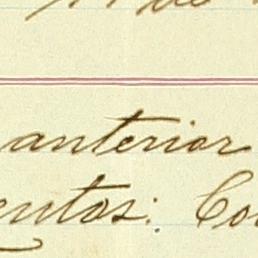 anterior
entos: Co